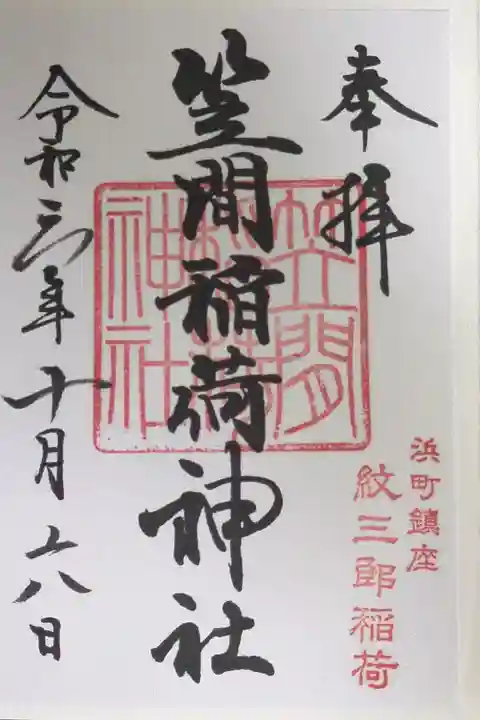 奉拝
浜町鎮座
紋三郎稲荷
笠間稲荷神社
笠間
稲荷
神社
令和三年十月八日